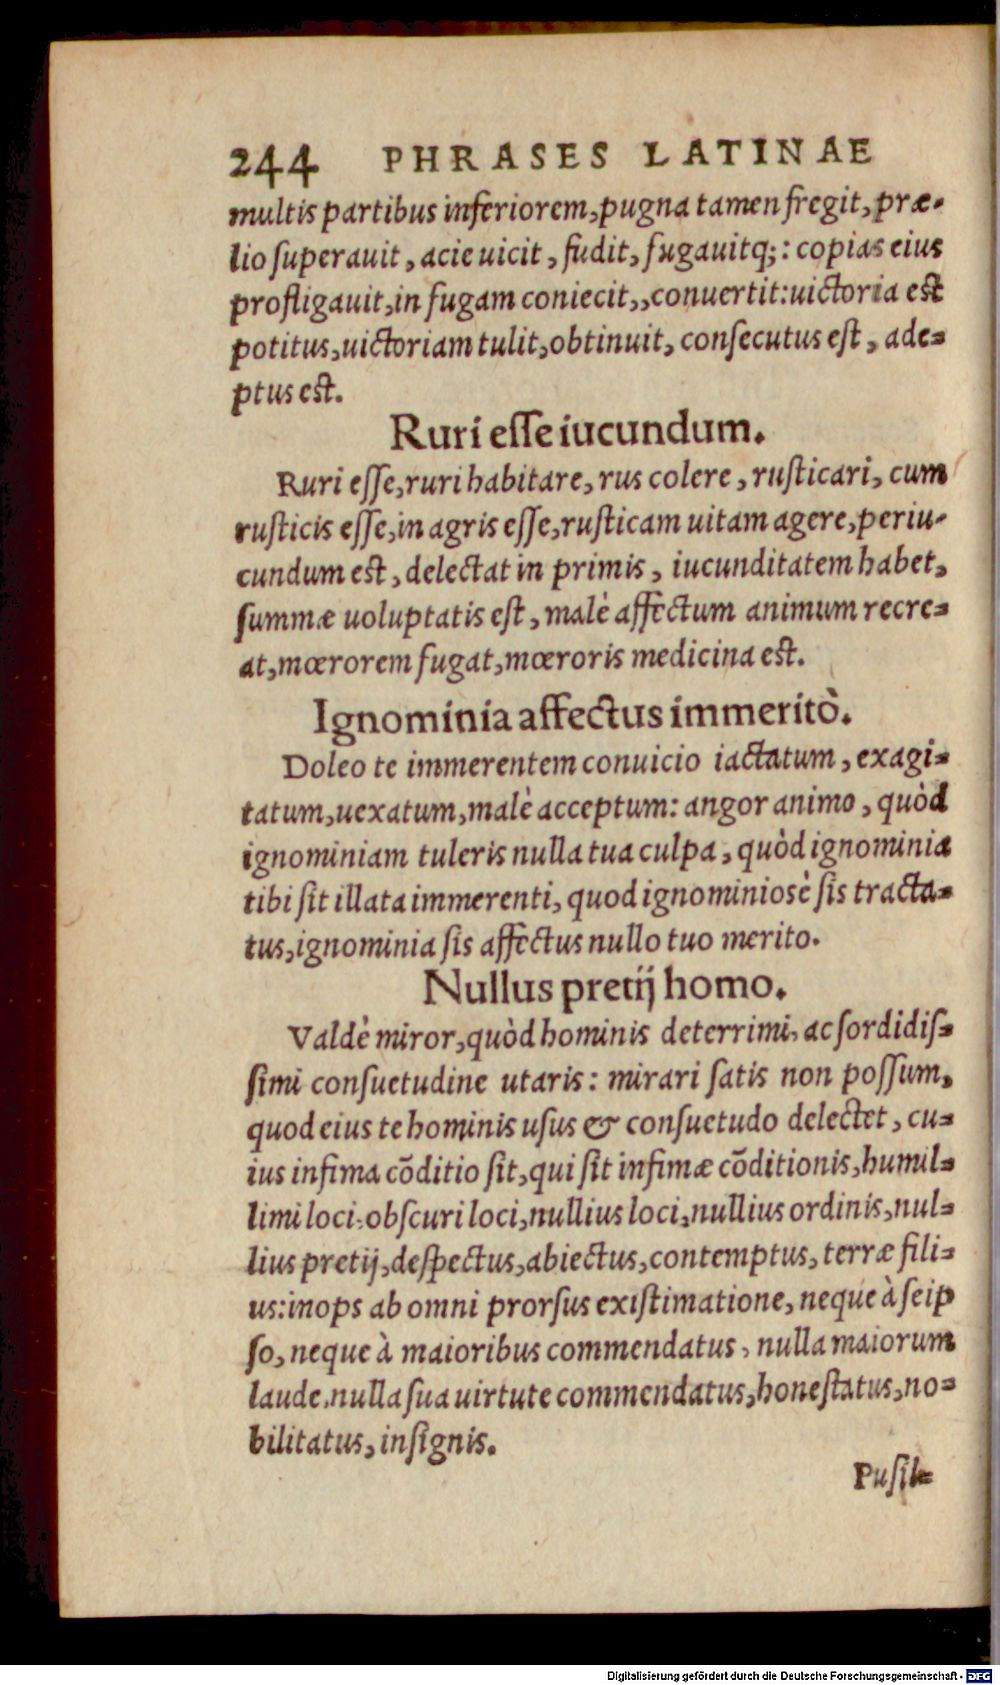 244 PHRASES LATINAE
multis partibus inferiorem, pugna tamen fregit, præ-
lio ſuperauit, acie uicit, fudit, fugauitq;: copias eius
profligauit, in fugam coniecit,, conuertit: uictoria est
potitus, uictoriam tulit, obtinuit, conſecutus eſt, ade-
ptus est.
Ruri eſſe iucundum.
Ruri eſſe, ruri habitare, rus colere, ruſticari, cum
ruſticis eſſe, in agris eſſe, ruſticam uitam agere, periu-
cundum est, delectat in primis, iucunditatem habet,
ſummæ uoluptatis eſt, malè affectum animum recre-
at, mœrorem fugat, mœroris medicina eſt.
Ignominia affectus immeritò.
Doleo te immerentem conuicio iactatum, exagi-
tatum, uexatum, malè acceptum: angor animo, quòd
ignominiam tuleris nulla tua culpa, quòd ignominia
tibi ſit illata immerenti, quod ignominiosè ſis tracta-
tus, ignominia ſis affectus nullo tuo merito.
Nullus pretij homo.
Valdè miror, quòd hominis deterrimi, ac ſordidiſ-
ſimi conſuetudine utaris: mirari ſatis non poſſum,
quod eius te hominis uſus & conſuetudo delectet, cu-
ius infima cõditio ſit, qui ſit infimæ cõditionis, humil-
limi loci, obſcuri loci, nullius loci, nullius ordinis, nul-
lius pretij, deſpectus, abiectus, contemptus, terræ fili-
us: inops ab omni prorſus exiſtimatione, neque à ſeip
ſo, neque à maioribus commendatus, nulla maiorum
laude, nulla ſua uirtute commendatus, honeſtatus, no-
bilitatus, inſignis.
Puſil-
Digitalisierung gefördert durch die Deutsche Forschungsgemeinschaft - DFG